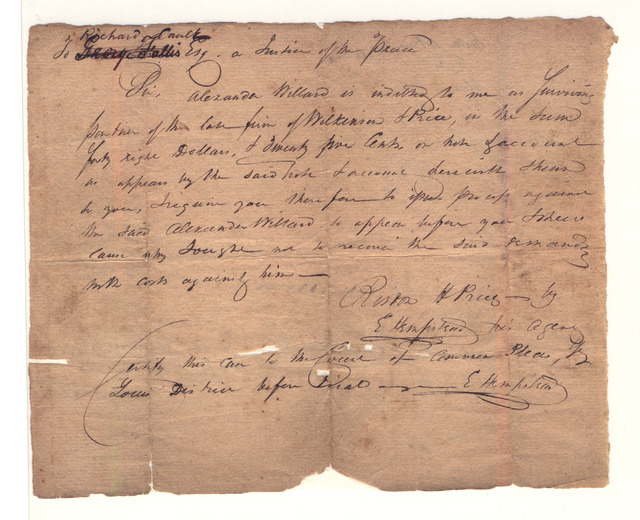 Richard Caulk
To George Fallis Esq. a Justice of the Peace
Sir, Alexander Willard is indebted to me as Surviving
partner of the late firm of Wilkinson & Price, in the Sum
forty eight Dollars, & Twenty five Cents, on note & account
as appears by the said note & account herewith shewn
to you, I require you therefore to issue process against
the said Alexander Willard to appear before you & shew
cause why I ought not to receive the said demand,
with costs against him —
Risdon H Price — by
E Hempstead his agent
Certify this case to the Court of Common Pleas, St
Louis District before trial — E Hempstead